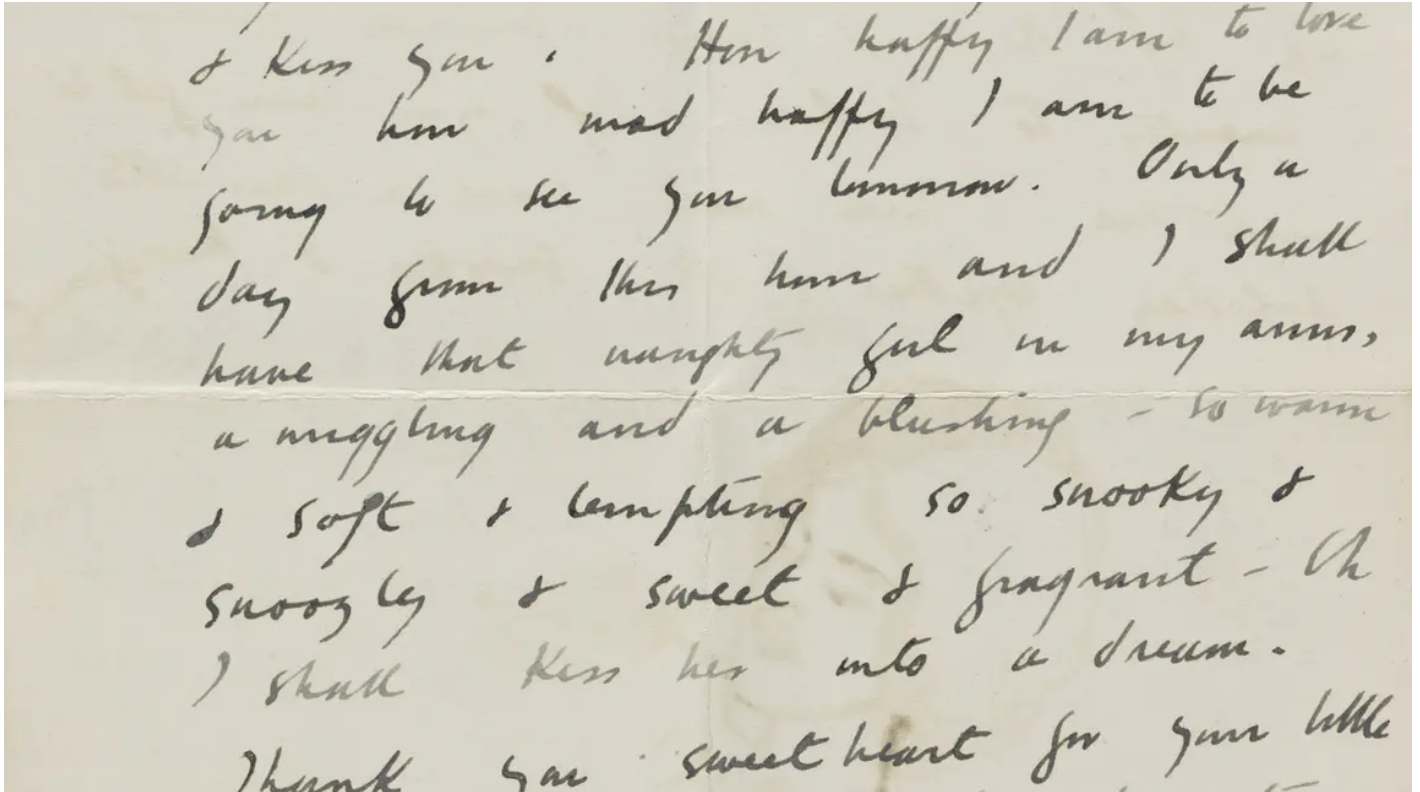 & Kiss you. How happy I am to love
you how mad happy I am to be
going to see you tomorrow. Only a
day from this hour and I shall
have that naughty girl in my arms,
a wriggling and a blushing - so warm
& soft & tempting so snooky &
snoozley & sweet & fragrant - Oh
I shall Kiss her into a dream.
Thank you sweetheart for your little